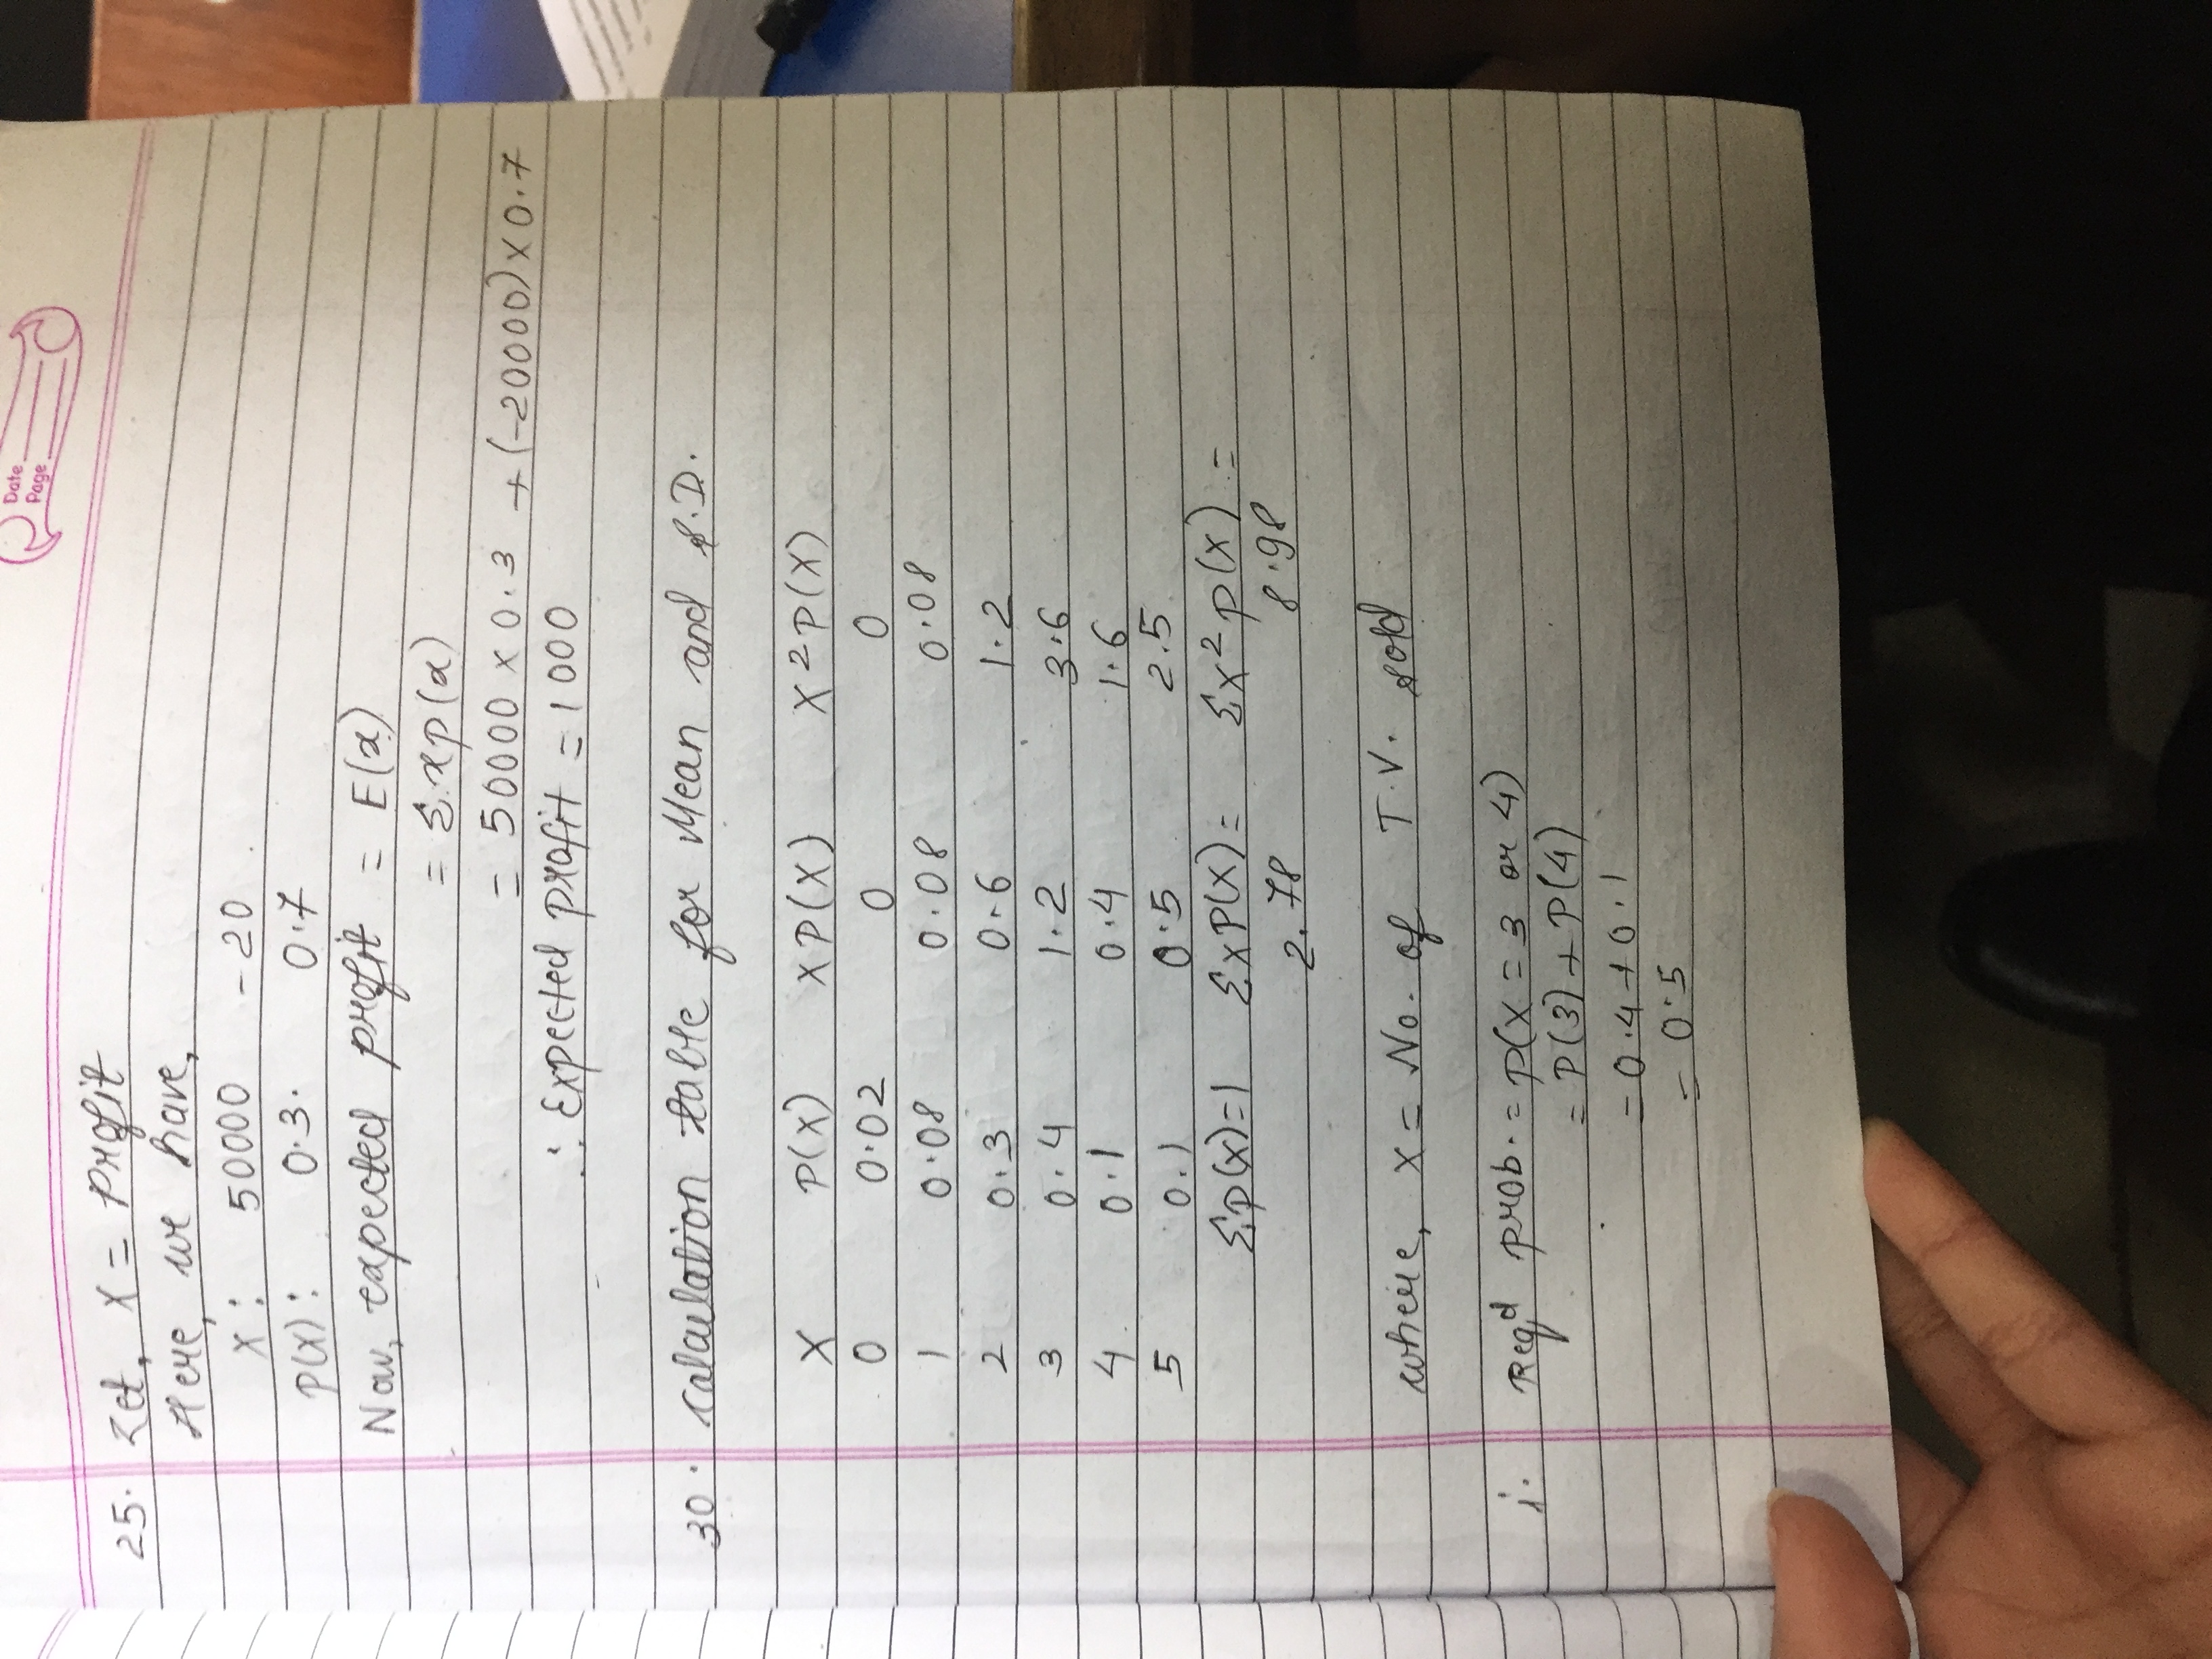 Date
Page
25. Let, X = Profit
Here, we have,
X : 50000 -20
P(X) : 0.3. 0.7
Now, expected profit = E(x)
= Σxp(x)
= 50000 × 0.3 + (-20000) × 0.7
∴ Expected profit = 1000
30. Calculation table for Mean and S.D.
X P(X) XP(X) X²P(X)
0 0.02 0 0
1 0.08 0.08 0.08
2 0.3 0.6 1.2
3 0.4 1.2 3.6
4 0.1 0.4 1.6
5 0.1 0.5 2.5
ΣP(X)=1 ΣXP(X)= ΣX²P(X) =
2.78 8.98
where, X = No. of T.V. sold
i. Reqd prob. = P(X = 3 or 4)
= P(3) + P(4)
= 0.4 + 0.1
= 0.5